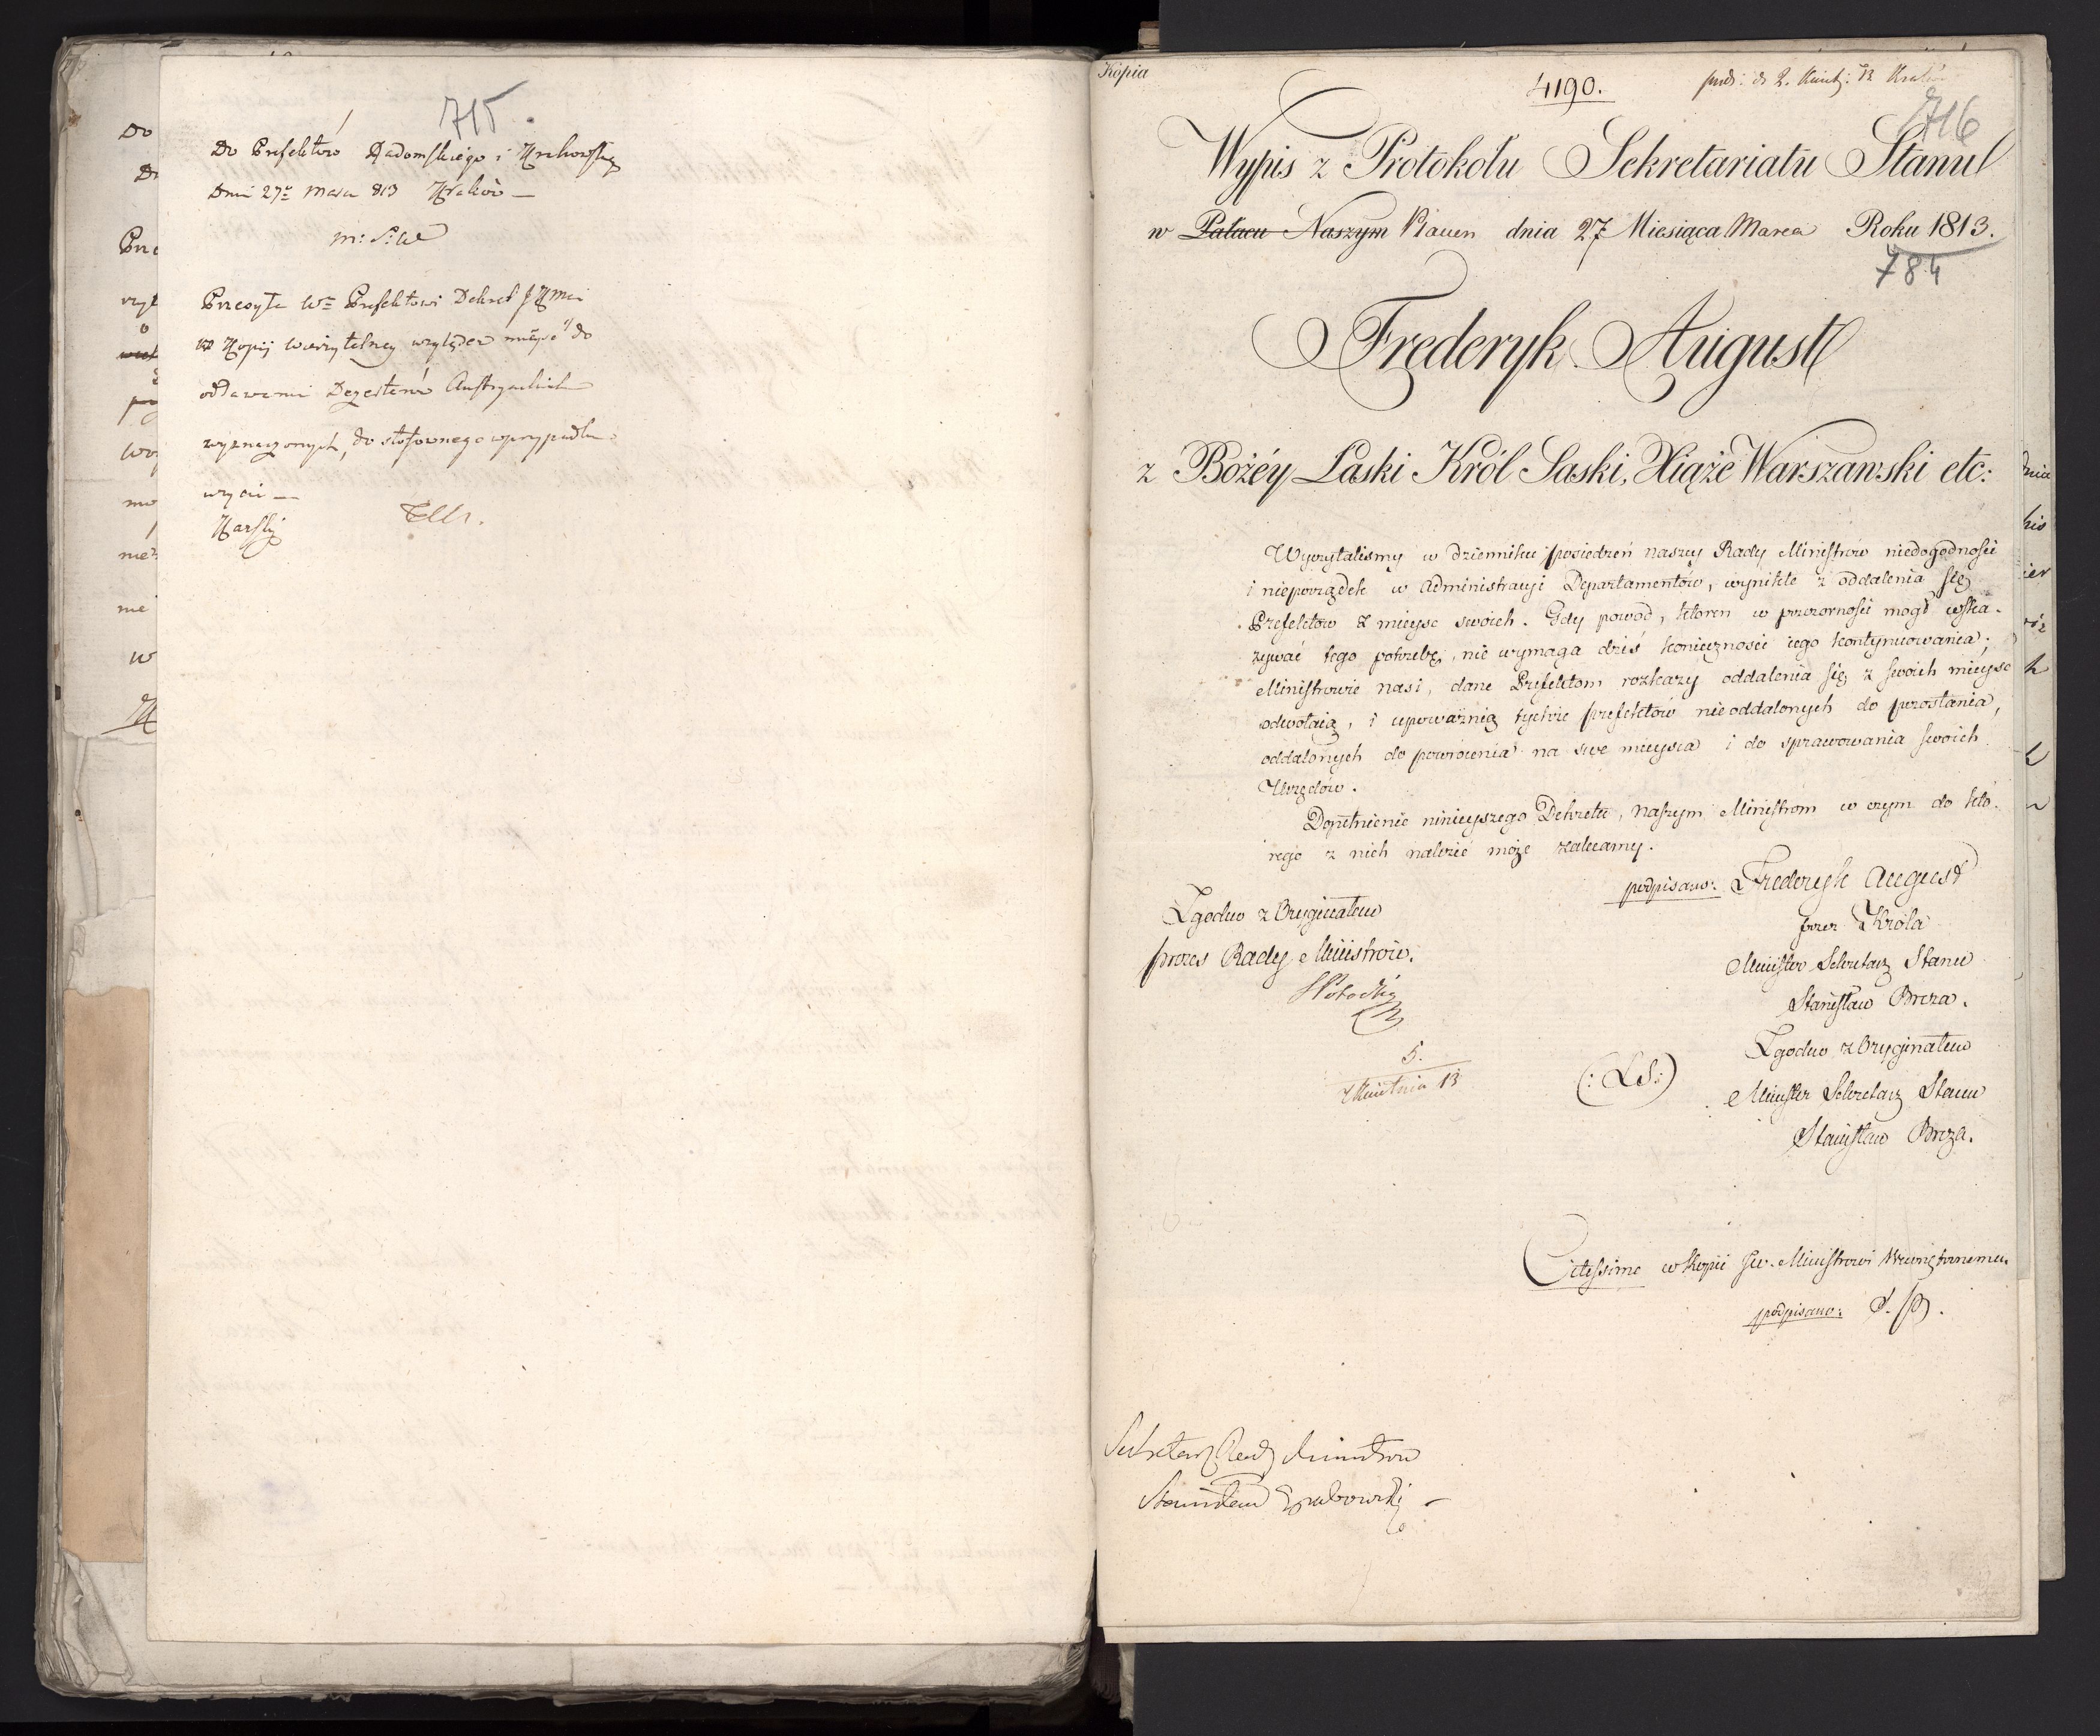 715
Do Prefektów Radomskiego i Krakowskieg
Dnia 27º Marca 813 Kraków —
M: S: W
Przesyła Wº Prefektowi Dekret JKMci
w Kopij wierzytelney wzgledem miejsc do
oddawania Dezerterów Austryackich
wyznaczonych, do stosownego w przypadku
uzycia —
Karski
Kopia
4190.
pred: d: 2. Kwiet: 13 Kraków
716
Wypis z Protokołu Sekretariatu Stanu
w Pałacu Naszym Plauen dnia 27 Miesiąca Marca Roku 1813.
784
Fryderyk August
z Bożéy Łaski Król Saski, Xiąże Warszawski etc:
Wyczytalismy w dzienniku posiedzeń naszey Rady Ministrów niedogodności
i nieporządek w Administracyi Departamentów, wynikłe z oddalenia się
Prefektow z mieysc swoich. Gdy powód, ktoren w przezorności mogł wska-
zywać tego potrzebę, nie wymaga dziś konieczności iego kontynuowania;
Ministrowie nasi, dane Prefektom rozkazy oddalenia się z swoich mieysc
odwołaią, i upoważnią tychże prefektów nieoddalonych do pozostania,
oddalonych do powrócenia na swe mieysca i do sprawowania swoich
Urzędów.
Dopełnienie ninieyszego Dekretu, naszym Ministrom w czym do któ-
rego z nich należeć może zalecamy.
podpisano: Fryderyk August
przez Króla
Minister Sekretarz Stanu
Stanisław Breza.
Zgodno z Oryginałem
prezes Rady Ministrów.
S Potocki
5.
Kwietnia 13
(: LS :)
Zgodno z Oryginałem
Minister Sekretarz Stanu
Stanisław Breza.
Citissime w kopii Jw. Ministrowi Wewnętrznemu
podpisano: S. P.
Sekretarz Rady Ministrow
Stanisław Grabowski